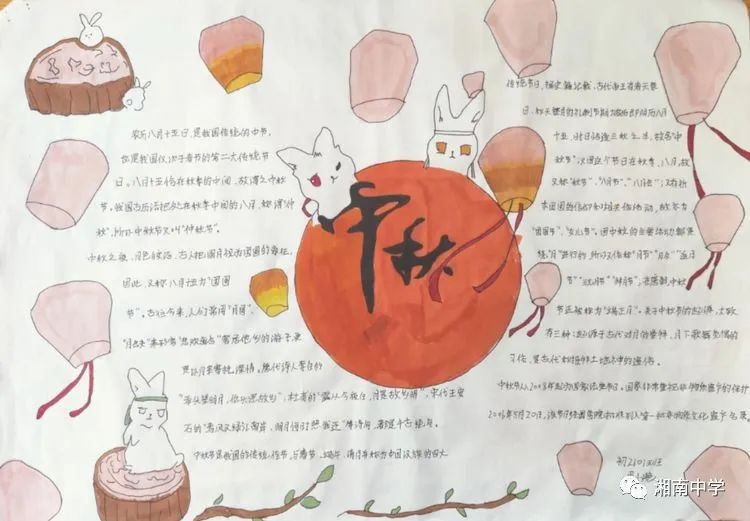 农历八月十五日,是我国传统的中节,
也是我国仅次于春节的第二大传统节
日。八月十五恰在秋季的中间,故谓之中秋
节。我国古历法把处在秋季中间的八月,称谓"仲
秋",所以中秋节又叫"仲秋节"。
中秋之夜,月色皎洁,古人把圆月视为团圆的象征,
因此,又称八月十五为"团圆
节"。古往今来,人们常用"月圆、
月缺"来形容"悲欢离合"客居他乡的游子,更
是以月来寄托深情。唐代诗人李白的
"举头望明月,低头思故乡",杜甫的"露从今夜白,月是故乡明",宋代王安
石的"春风又绿江南岸,明月何时照我还"等诗句,都是千古绝唱。
中秋节是我国的传统佳节,与春节、端午、清明并称为中国汉族的四大
中秋
传统节日,据史籍记载,古代帝王有春天祭
日、秋天祭月的礼制,节期为
十五,时日恰逢三秋之半,故名"中
秋节",又因这个节日在秋季、八月,故
又称"秋节"、"八月节"、
"团圆节"、"女儿节"。因中秋的主要活动都是
绕"月"进行的,所以又俗称"月节""月夕"
中秋
节还被称为"端正月"。关于中秋节的起源,大致
有三种:起源于古代对月的崇拜、月下歌舞觅偶的
习俗,是古代秋报拜土地神的遗俗。
中秋节从2008年起为国家法定节日。国家非常重视非物质文化遗产的保护
2006年5月20日,该节日经国务院批准列入第一批国家级非物质文化遗产名录。
湘南中学